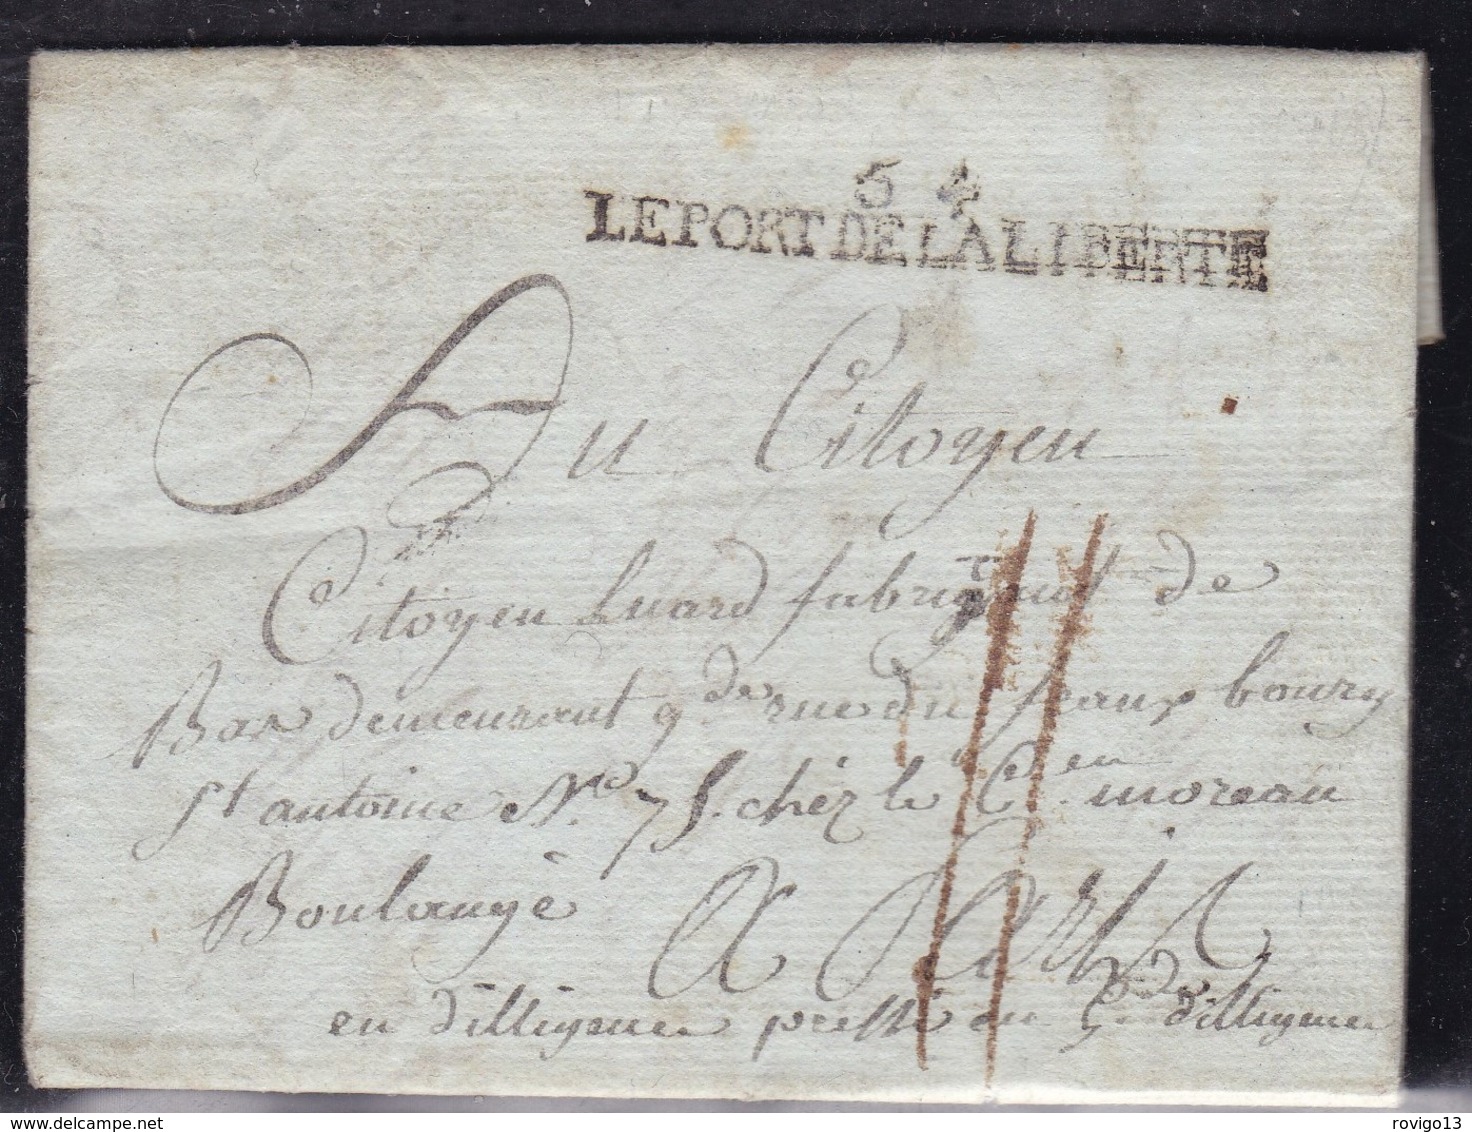 5 4
LE PORT DE LA LIBERTE
Au Citoyen
Citoyen Luard fabriquant de
Bas demeurant g de rue du feaux bourg
st antoine No. 75. chéz le C en moreau
Boulangé A Paris
en dilligence pressé en g de dilligence
delcampe.net
rovigo13